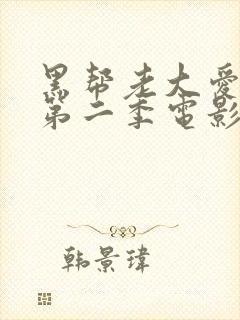 黑帮老大爱
第二季电影
韩景瑋